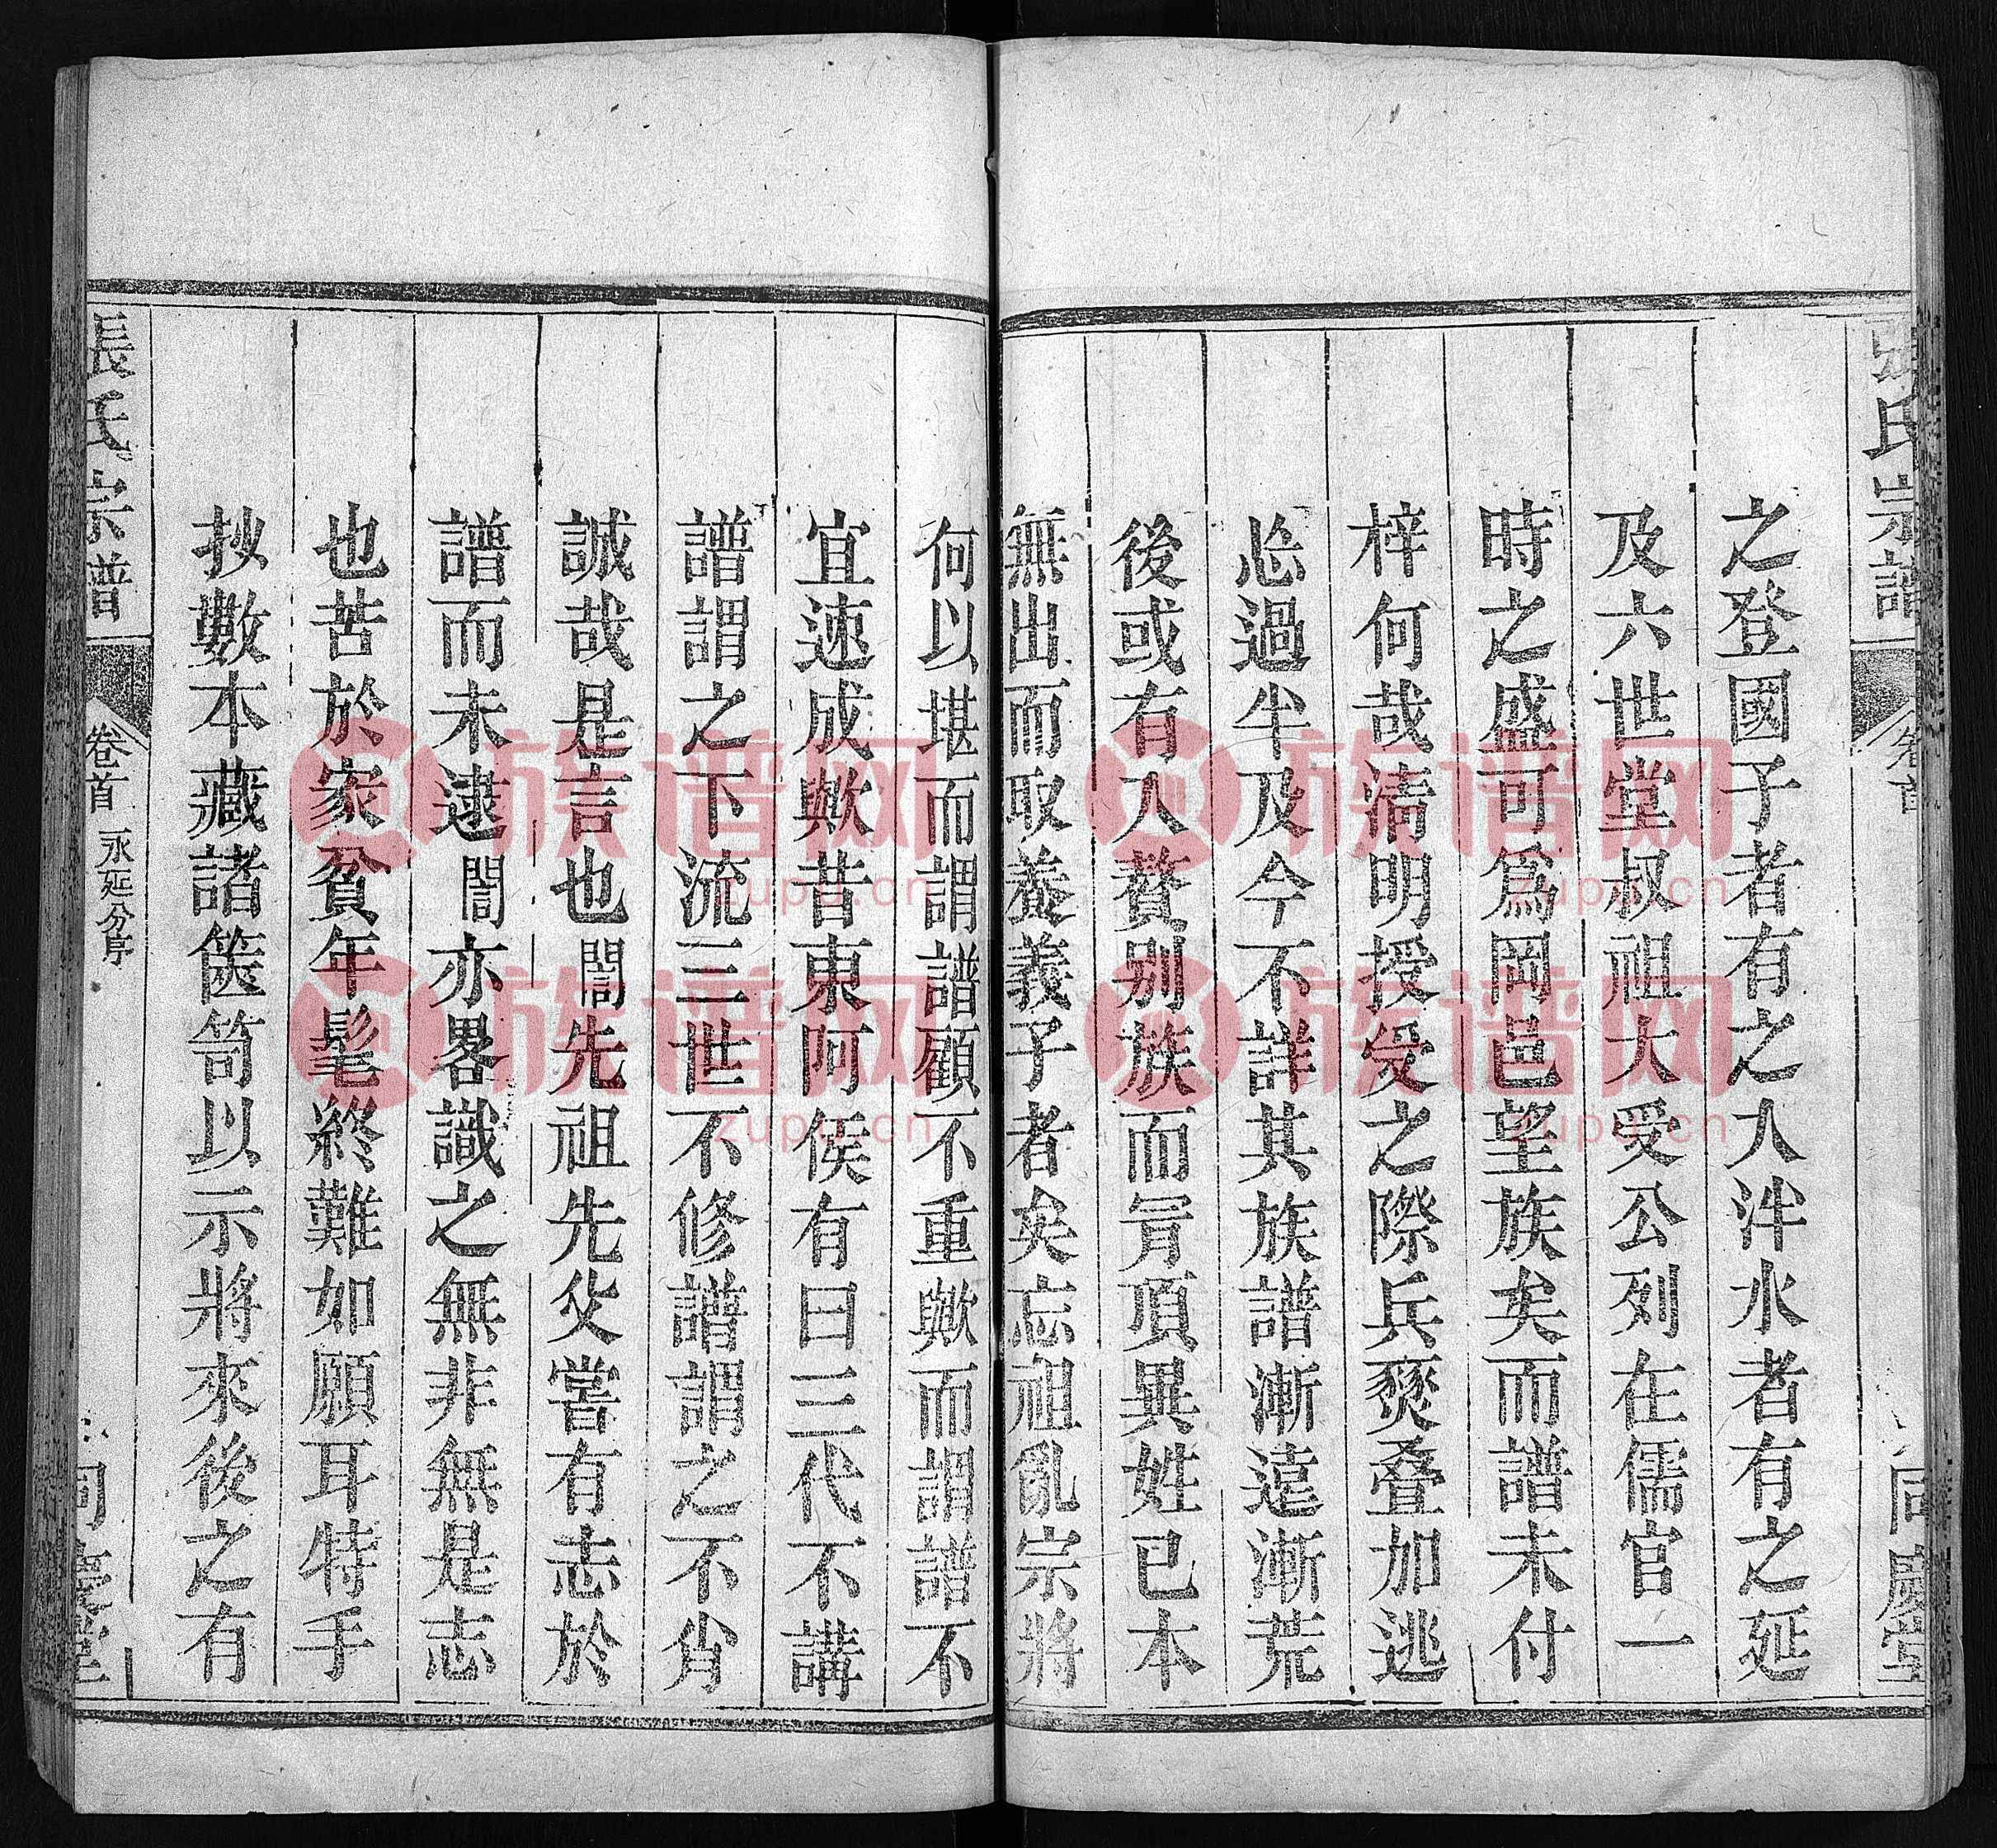 張氏宗譜
卷首
同慶堂
之登國子者有之入泮水者有之延
及六世堂叔祖大受公列在儒官一
時之盛可爲岡邑望族矣而譜未付
梓何哉淸明授受之際兵燹疊加逃
亾過半及今不詳其族譜漸遠漸荒
後或有入贅別族而冐頂異姓已本
無出而取養義子者矣忘祖亂宗將
何以堪而謂譜顧不重歟而謂譜不
宜速成歟昔東阿侯有曰三代不講
譜謂之下流三世不修譜謂之不肖
誠哉是言也誾先祖先父嘗有志於
譜而未逮誾亦畧識之無非無是志
也苦於家貧年髦終難如願耳特手
抄數本藏諸篋笥以示將來後之有
張氏宗譜
卷首
永延分序
同慶堂
族谱网
zupu.cn
族谱网
zupu.cn
族谱网
zupu.cn
族谱网
zupu.cn